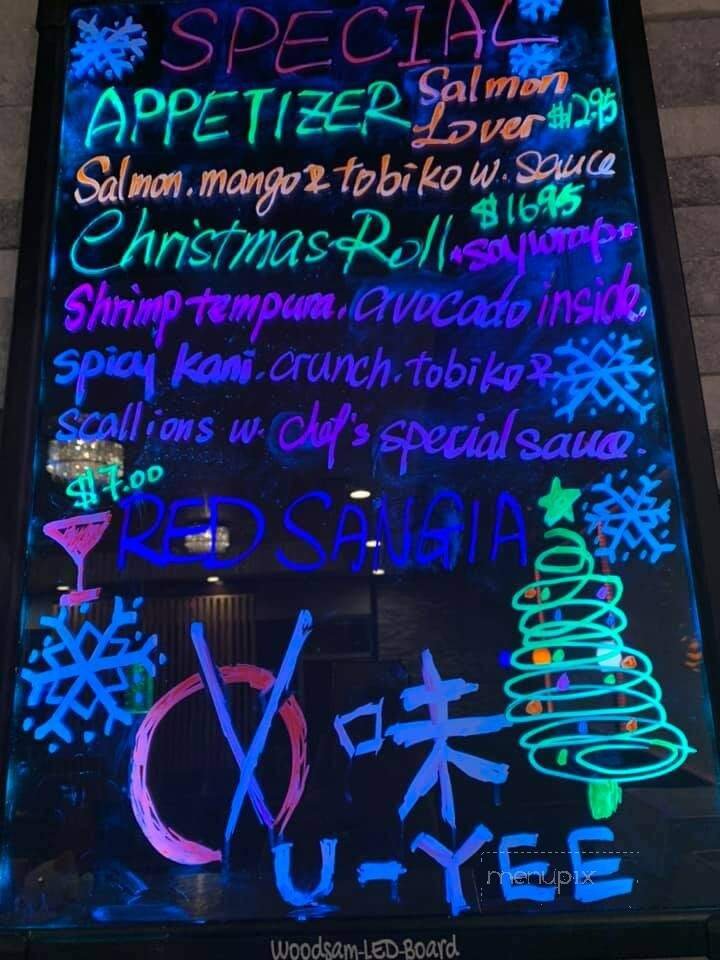 SPECIAL
APPETIZER Salmon Lover $12.95
Salmon. mango & tobiko w. sauce
Christmas Roll. soy wrap $16.95
Shrimp tempura. avocado inside
spicy kani. crunch. tobiko &
scallions w. chef's special sauce.
$7.00
RED SANGIA
味
U-YEE
menupix
Woodsam-LED-Board